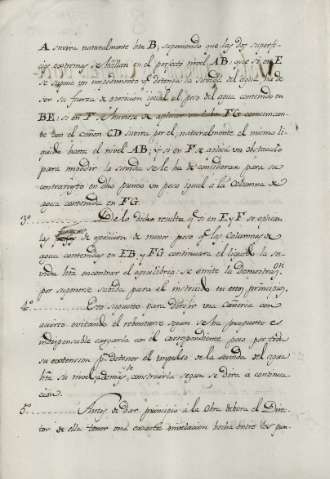 A subira naturalmente hta B, suponiendo que las dos superfi-
cies extremas se hallan en el perfecto nivel AB; que si en E
se supone un impedimento qe detenga la subida del agua ha de
ser su fuerza de oposicion igual al peso del agua contenida en
BE: si en F se hubiera de aplicar un tubo FG comunican-
te con el cañon CD subira por el naturalmente el mismo li-
quido hasta el nivel AB; y si en F se aplica un obstaculo
para impedir la subida se le ha de considerar para su
contraresto en dho punto un peso igual a la Columna de
agua contenida en FG.
3º De lo dicho resulta qe si en E y F se aplican
las de oposicion de menor peso qe las Columnas de
agua contenidas en EB, y FG continuara el liquido la su-
vida hta encontrar el equilibrio: se omite la Demostracon
por suponerse sabida para el instruido en estos principios.
4º Esto supuesto para dirigir una Cañeria con
acierto evitando el rebentarse segun se ha propuesto es
indispensable cargarla con el correspondiente peso por toda
su extension pa detener el impulso de la subida del agua
hta su nivel, ademas de construirla segun se dira a continua-
cion.
5º Antes de dar principio a la Obra debera el Direc-
tor de ella tener una exacta nivelacion hecha entre los pun-